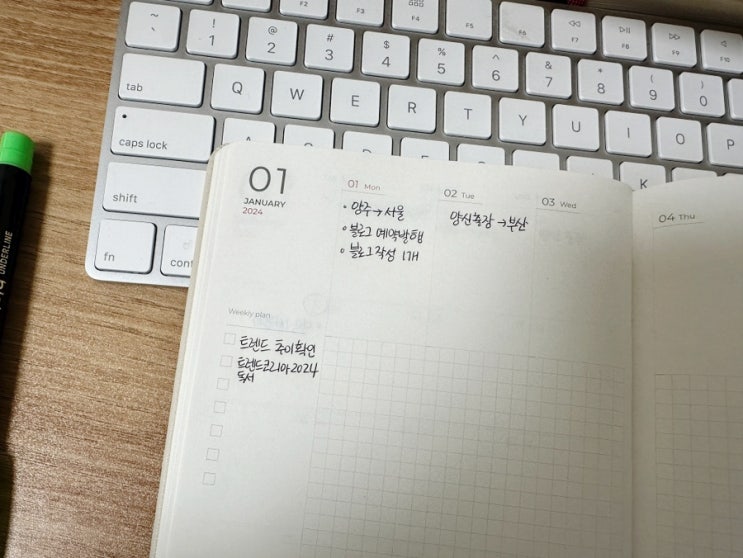 ~ ` ! 1 @ 2 # 3 $ 4 % 5 ^ 6 & 7 * 8 ( 9 ) 0
F2 F3 F4 F5 F6 F7 F8 F9 F10
tab Q W E R T Y U I O P
caps lock
K
shift
fn
UNDERLINE
01
JANUARY
2024
01 Mon
• 양주→서울
• 블로그 예약발행
• 블로그 작성 1개
02 Tue
→부산
03 Wed
04 Thu
Weekly plan
트렌드 추이확인
트렌드코리아2024
독서